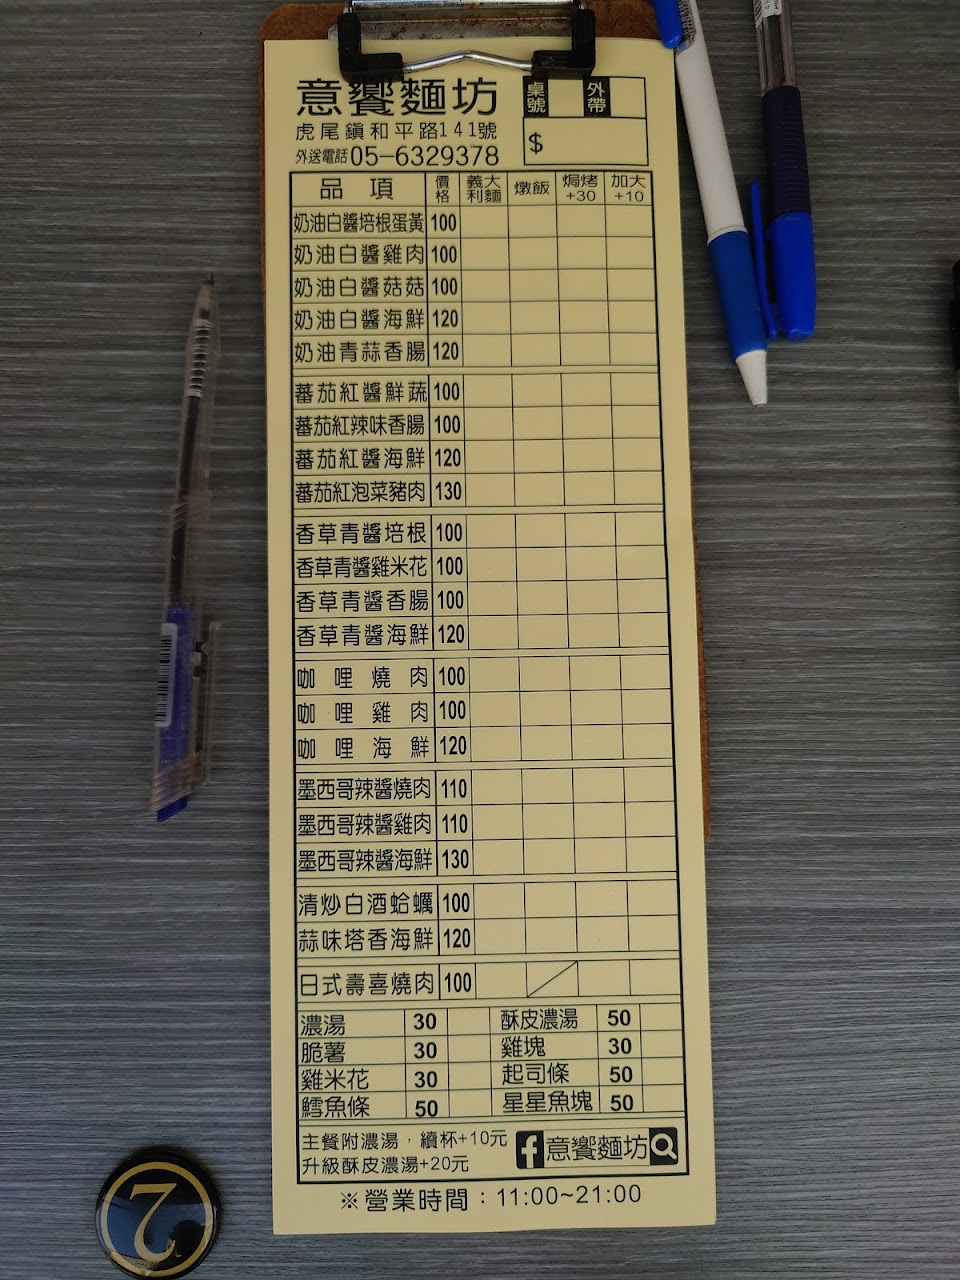 意饗麵坊
桌號 外帶
虎尾鎮和平路141號
$
外送電話05-6329378
品項 價格 義大利麵 燉飯 焗烤+30 加大+10
奶油白醬培根蛋黃 100
奶油白醬雞肉 100
奶油白醬菇菇 100
奶油白醬海鮮 120
奶油青蒜香腸 120
蕃茄紅醬鮮蔬 100
蕃茄紅辣味香腸 100
蕃茄紅醬海鮮 120
蕃茄紅泡菜豬肉 130
香草青醬培根 100
香草青醬雞米花 100
香草青醬香腸 100
香草青醬海鮮 120
咖哩燒肉 100
咖哩雞肉 100
咖哩海鮮 120
墨西哥辣醬燒肉 110
墨西哥辣醬雞肉 110
墨西哥辣醬海鮮 130
清炒白酒蛤蠣 100
蒜味塔香海鮮 120
日式壽喜燒肉 100
濃湯 30 酥皮濃湯 50
脆薯 30 雞塊 30
雞米花 30 起司條 50
鱈魚條 50 星星魚塊 50
主餐附濃湯，續杯+10元
升級酥皮濃湯+20元
f 意饗麵坊
※營業時間：11:00~21:00
2